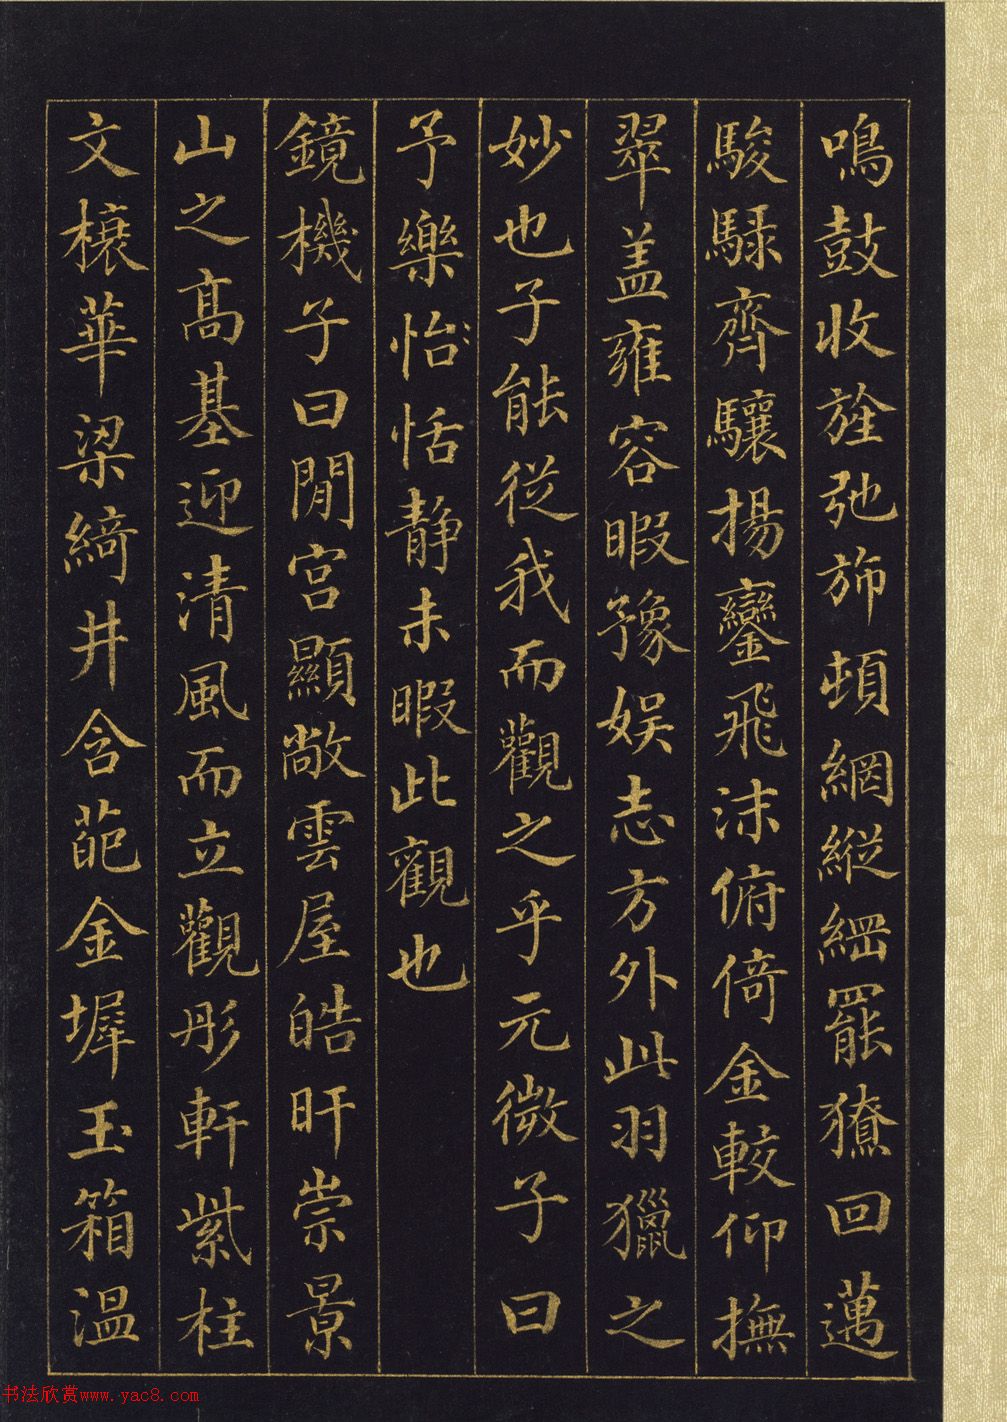 鳴鼓收旌弛斾頓網縱綱罷獠回邁
駿騄齊驤揚鑾飛沫俯倚金較仰撫
翠盖雍容暇豫娱志方外此羽獵之
妙也子能從我而觀之乎元微子曰
予樂怡恬静未暇此觀也
鏡機子曰閒宫顯敞雲屋皓旰崇景
山之髙基迎清風而立觀彤軒紫柱
文榱華梁綺井含葩金墀玉箱温
书法欣赏www.yac8.com